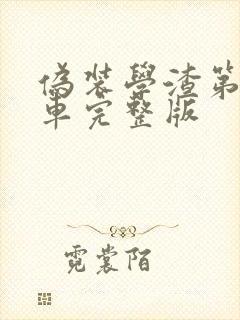 偽裝學渣第
車完整版
霓裳陌